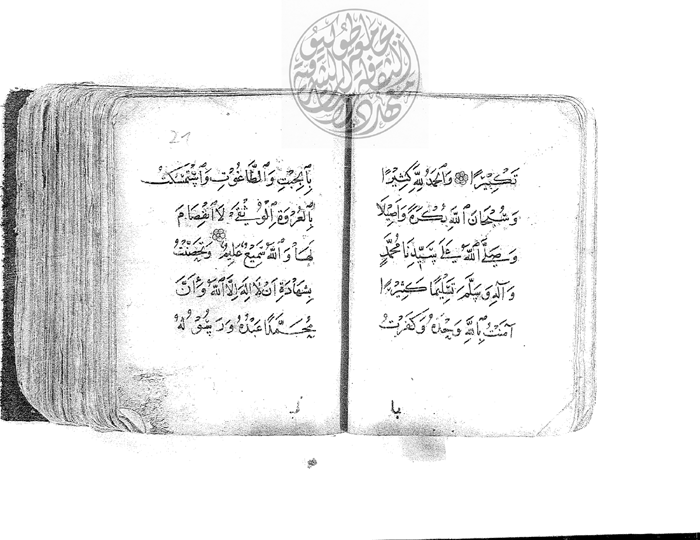 تَكْبِيْرًا وَالْحَمْدُ لِلّٰهِ كَثِيْرًا
وَسُبْحَانَ اللّٰهِ بُكْرَةً وَاَصِيْلًا
وَصَلَّى اللّٰهُ عَلَى سَيِّدِنَا مُحَمَّدٍ
وَاٰلِهِ وَسَلَّمَ تَسْلِيْمًا كَثِيْرًا
اٰمَنْتُ بِاللّٰهِ وَحْدَهُ وَكَفَرْتُ
با
21
بِالْجِبْتِ وَالطَّاغُوْتِ وَاسْتَمْسَكْتُ
بِالْعُرْوَةِ الْوُثْقٰى لَا انْفِصَامَ
لَهَا وَاللّٰهُ سَمِيْعٌ عَلِيْمٌ وَتَحَصَّنْتُ
بِشَهَادَةِ اَنْ لَا اِلٰهَ اِلَّا اللّٰهُ وَاَنَّ
مُحَمَّدًا عَبْدُهُ وَرَسُوْلُهُ